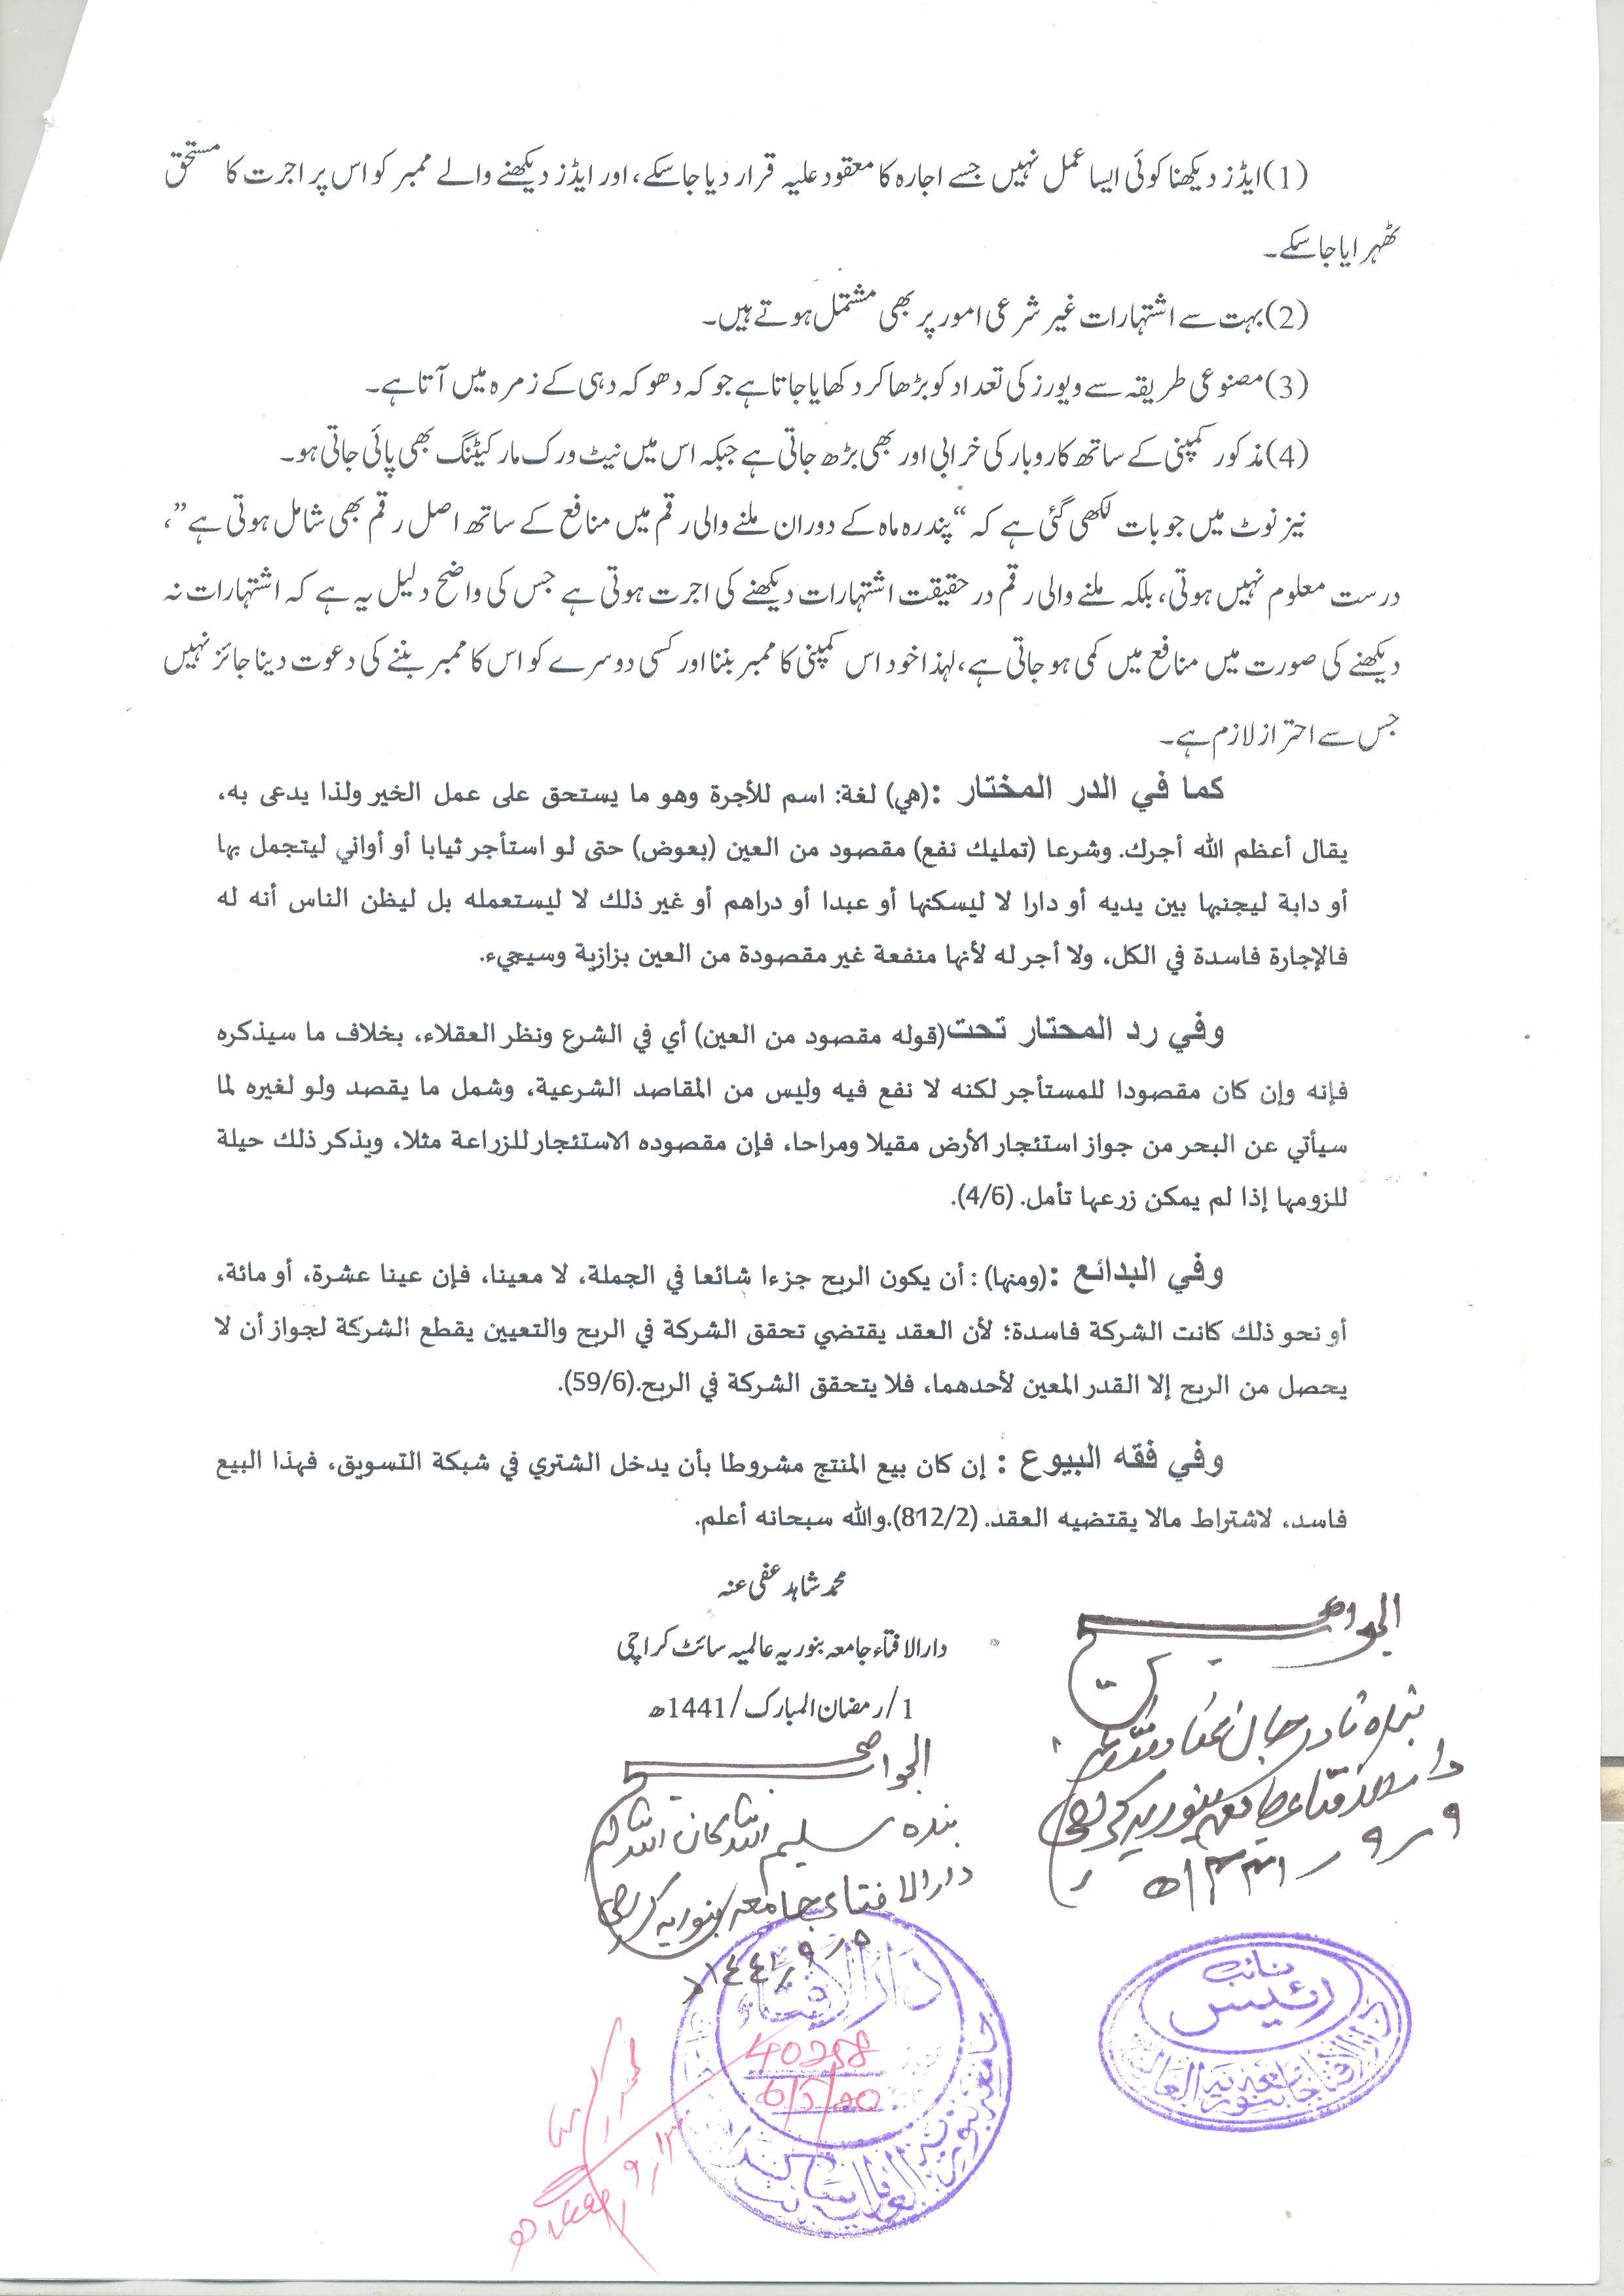 (1) ایڈز دیکھنا کوئی ایسا عمل نہیں جسے اجارہ کا معقود علیہ قرار دیا جاسکے، اور ایڈز دیکھنے والے ممبر کو اس پر اجرت کا مستحق
ٹھہرایا جاسکے۔
(2) بہت سے اشتہارات غیر شرعی امور پر بھی مشتمل ہوتے ہیں۔
(3) مصنوعی طریقہ سے ویورز کی تعداد کو بڑھا کر دکھایا جاتا ہے جو کہ دھوکہ دہی کے زمرہ میں آتا ہے۔
(4) مذکور کمپنی کے ساتھ کاروبار کی خرابی اور بھی بڑھ جاتی ہے جبکہ اس میں نیٹ ورک مارکیٹنگ بھی پائی جاتی ہو۔
نیز نوٹ میں جو بات لکھی گئی ہے کہ “پندرہ ماہ کے دوران ملنے والی رقم میں منافع کے ساتھ اصل رقم بھی شامل ہوتی ہے”،
درست معلوم نہیں ہوتی، بلکہ ملنے والی رقم در حقیقت اشتہارات دیکھنے کی اجرت ہوتی ہے جس کی واضح دلیل یہ ہے کہ اشتہارات نہ
دیکھنے کی صورت میں منافع میں کمی ہو جاتی ہے، لہذا خود اس کمپنی کا ممبر بننا اور کسی دوسرے کو اس کا ممبر بننے کی دعوت دینا جائز نہیں
جس سے احتراز لازم ہے۔
كما في الدر المختار :(هي) لغة: اسم للأجرة وهو ما يستحق على عمل الخير ولذا يدعى به،
يقال أعظم الله أجرك. وشرعا (تمليك نفع) مقصود من العين (بعوض) حتى لو استأجر ثيابا أو أواني ليتجمل بها
أو دابة ليجنبها بين يديه أو دارا لا ليسكنها أو عبدا أو دراهم أو غير ذلك لا ليستعمله بل ليظن الناس أنه له
فالإجارة فاسدة في الكل، ولا أجر له لأنها منفعة غير مقصودة من العين بزازية وسيجيء.
وفي رد المحتار تحت(قوله مقصود من العين) أي في الشرع ونظر العقلاء، بخلاف ما سيذكره
فإنه وإن كان مقصودا للمستأجر لكنه لا نفع فيه وليس من المقاصد الشرعية، وشمل ما يقصد ولو لغيره لما
سيأتي عن البحر من جواز استئجار الأرض مقيلا ومراحا، فإن مقصوده الاستئجار للزراعة مثلا، ويذكر ذلك حيلة
للزومها إذا لم يمكن زرعها تأمل. (4/6).
وفي البدائع :(ومنها) : أن يكون الربح جزءا شائعا في الجملة، لا معينا، فإن عينا عشرة، أو مائة،
أو نحو ذلك كانت الشركة فاسدة؛ لأن العقد يقتضي تحقق الشركة في الربح والتعيين يقطع الشركة لجواز أن لا
يحصل من الربح إلا القدر المعين لأحدهما، فلا يتحقق الشركة في الربح.(59/6).
وفي فقه البيوع : إن كان بيع المنتج مشروطا بأن يدخل الشتري في شبكة التسويق، فهذا البيع
فاسد، لاشتراط مالا يقتضيه العقد. (812/2).والله سبحانه أعلم.
محمد شاہد عفی عنہ
دارالافتاء جامعہ بنوریہ عالمیہ سائٹ کراچی
1/رمضان المبارک/1441ھ
الجواب صحیح
بندہ نادر جان
دارالافتاء جامعہ بنوریہ کراچی
۹ / ۹ / ۱۴۴۱ھ
الجواب صحیح
بندہ سلیم اللہ کان اللہ لہ
دارالافتاء جامعہ بنوریہ کراچی
نائب
رئیس
دار الافتاء جامعہ بنوریہ العالمیہ
دَارُ الإفتَاء
40258
6/5/20